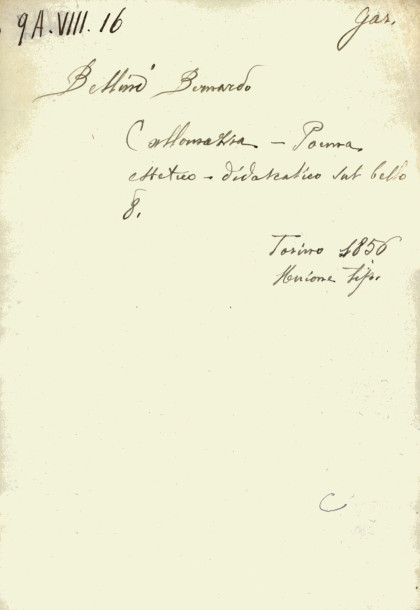 9A.VIII.16
Gas.
Bellini Bernardo
Callomazia – Poema
estetico – didascalico sul bello
8.
Torino 1856
Unione tip.
C